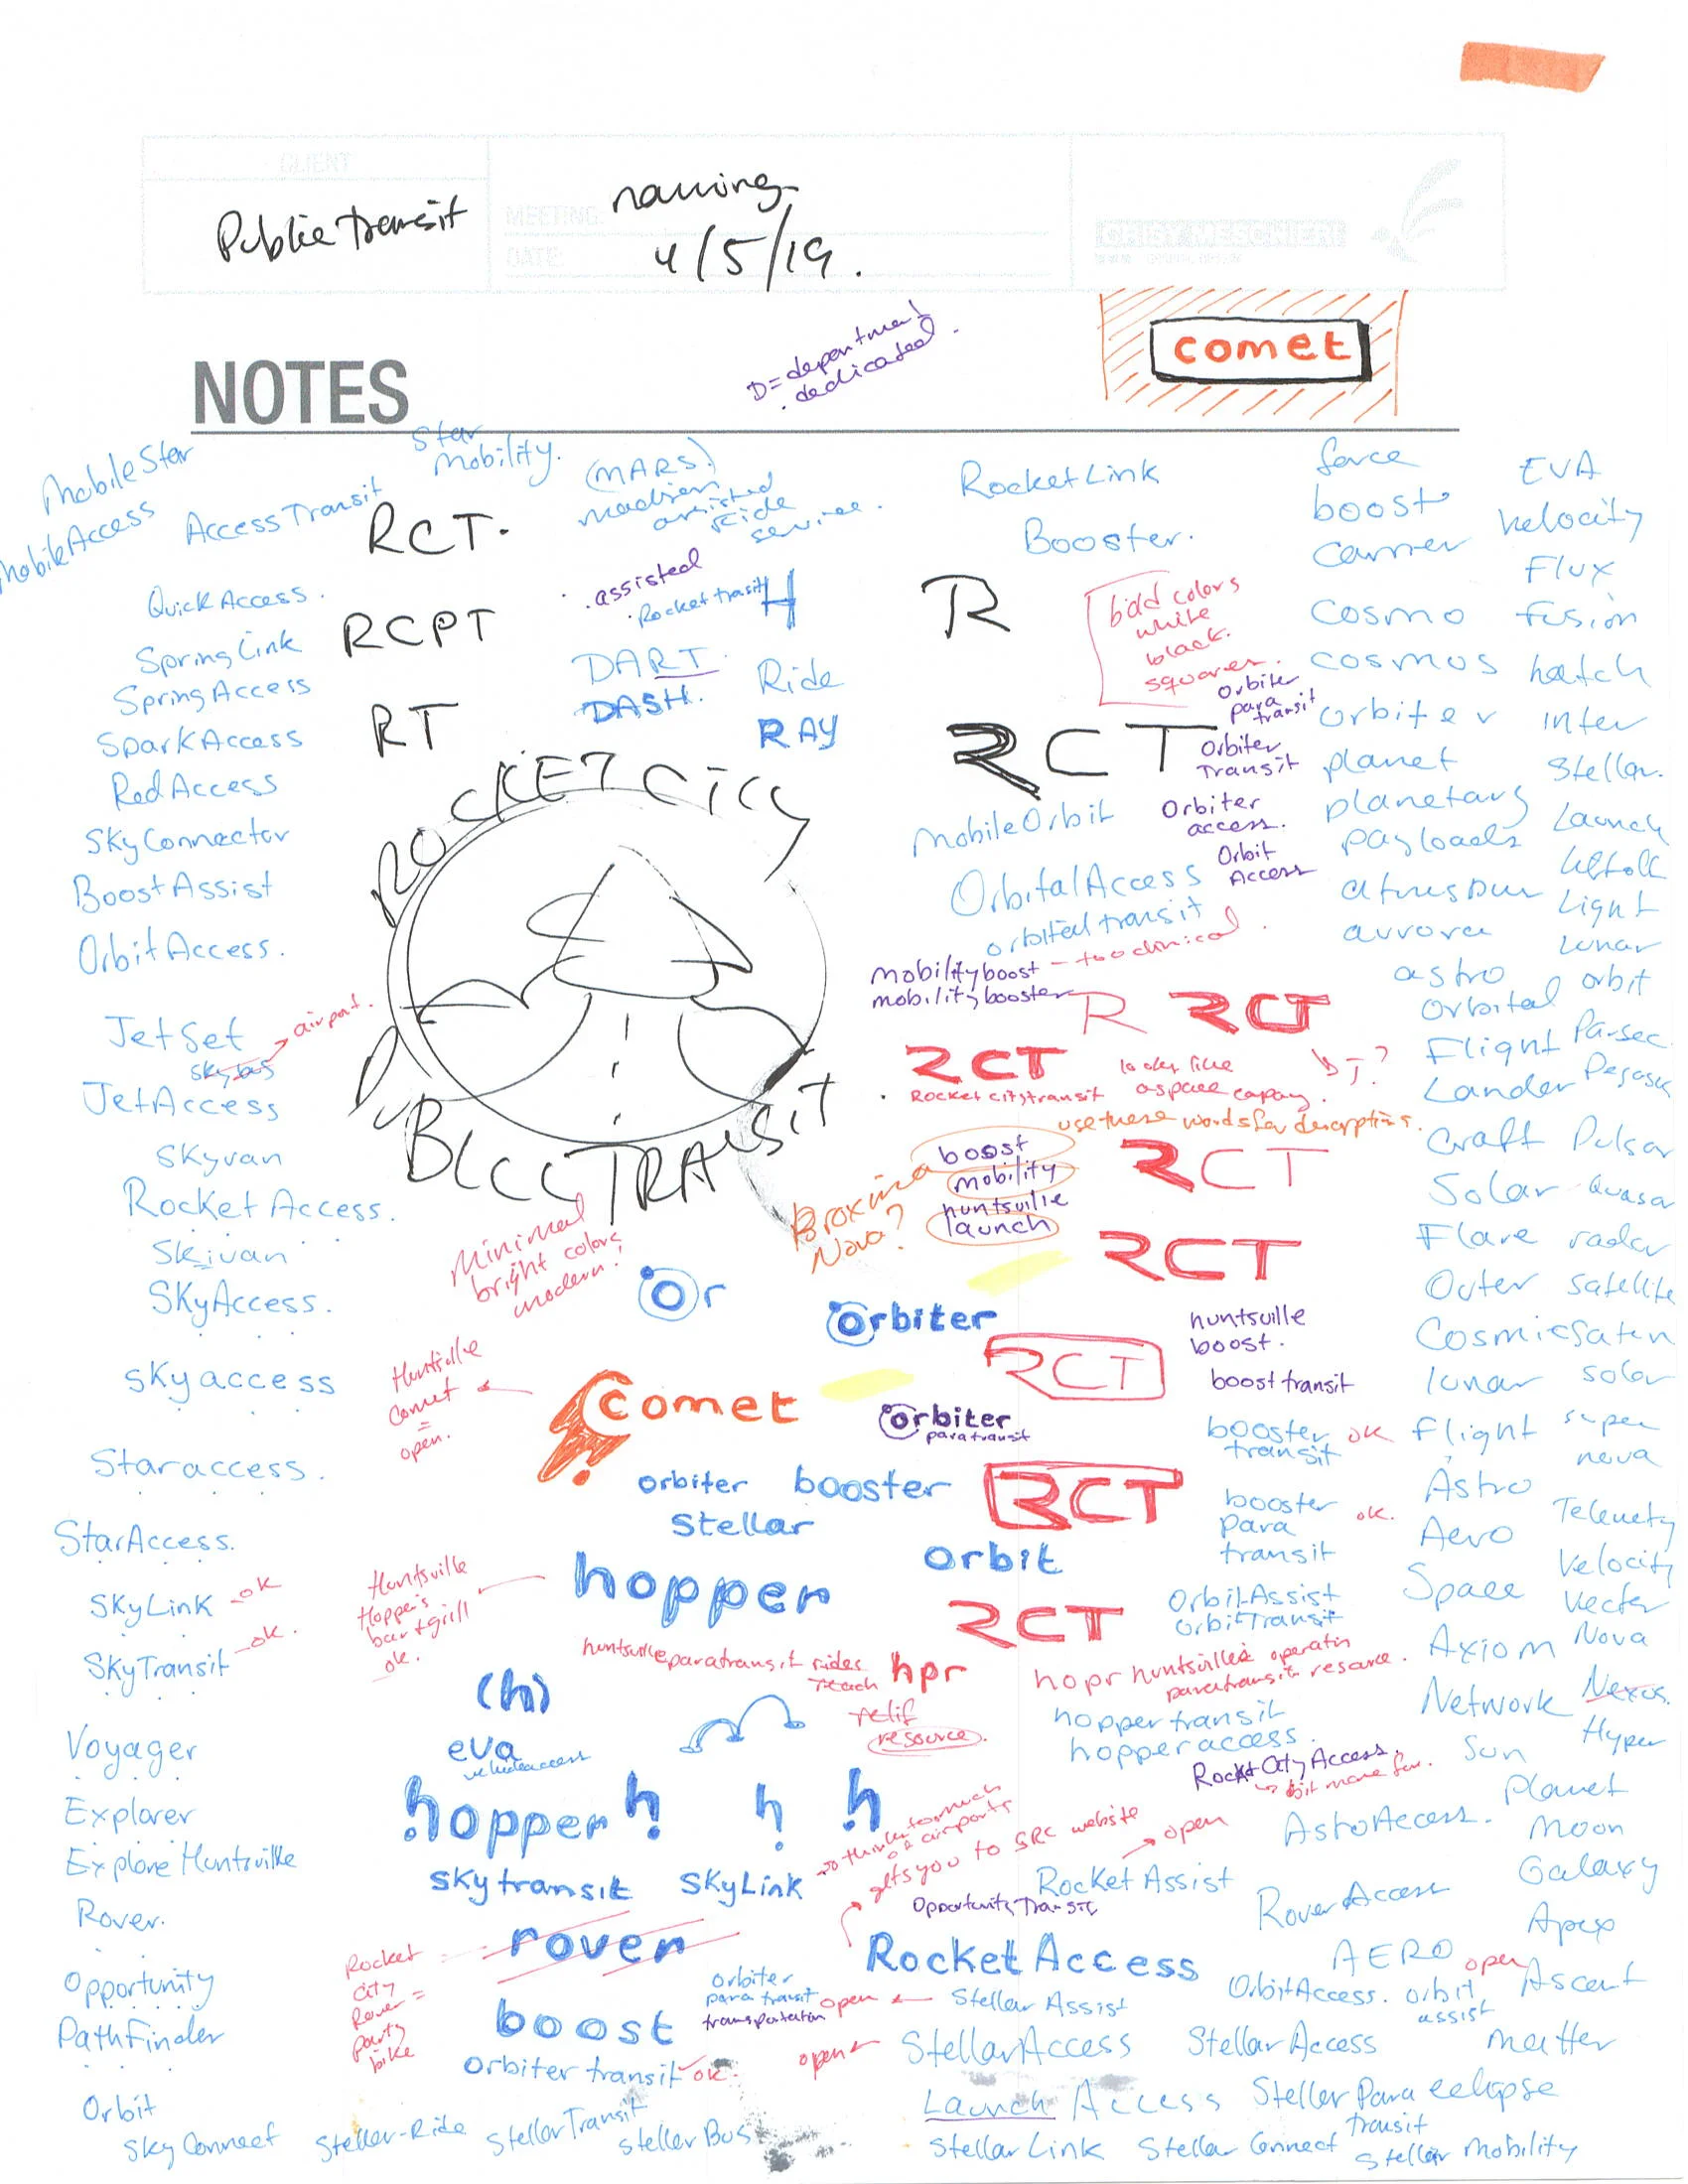 CLIENT
Public Transit
MEETING: naming
DATE: 4/5/19.
CRISY MESCHIERI
comet
D = department
. dedicated.
NOTES
MobileStar
MobileAccess
AccessTransit
Star
Mobility.
(MARS)
madison
assisted
ride
service.
RCT.
RCPT
RT
. assisted
. Rocket transit
H
DART
DASH.
Ride
RAY
QuickAccess.
SpringLink
SpringAccess
SparkAccess
RedAccess
SkyConnector
BoostAssist
OrbitAccess.
JetSet
skybus
airport.
JetAccess
Skyvan
Rocket Access.
Skivan
SkyAccess.
skyaccess
Staraccess.
StarAccess.
SkyLink - ok
SkyTransit - ok.
Voyager
Explorer
Explore Huntsville
Rover.
Opportunity
Pathfinder
Orbit
Sky Connect
ROCKET CITY
TRANSIT
RocketLink
Booster.
R
bold colors
white
black.
squares.
RCT
Orbiter
para
transit
Orbiter
Transit
Orbiter
access.
Orbit
Access
MobileOrbit
OrbitalAccess
orbital transit
mobilityboost - too clinical.
mobilitybooster
R RCT
RCT
Rocket city transit
looks like
a space
use these words for descriptions.
boost
mobility
huntsville
launch
Proxima
Nova?
RCT
RCT
minimal
bright colors
modern!
Or
Orbiter
huntsville
boost.
RCT
boost transit
Huntsville
comet
=
open.
comet
Orbiter
paratransit
booster
transit ok
orbiter booster
Stellar
RCT
booster
para
transit ok.
orbit
Huntsville
Hopper's
bar + grill
ok.
hopper
RCT
OrbitAssist
OrbitTransit
huntsville paratransit rides
reach
hpr
hopr huntsville's operatin
paratransit resource.
(h)
relif
resource.
hopper transit
hopper access.
eva
vehicle access
RocketCityAccess.
bit more fun.
hopper h h h
AstroAccess.
skytransit SkyLink
gets you to SRC website
open
Rocket Assist
Opportunity Transit
RoverAccess
rover
Rocket
City
Rover =
party
bike
RocketAccess
AERO
open
OrbitAccess.
orbit
assist
boost
Orbiter
para transit
transportation
open
Stellar Assist
Orbiter transit ok.
open
StellarAccess Stellar Access
Launch Access
Steller Para
transit
Steller-Ride
StellerTransit
Steller Bus
Stellar Link
Stellar Connect
Stellar Mobility
force
boost
carrier
cosmo
cosmos
orbiter
planet
planetary
payloads
aurora
astro
Orbital
Flight
Lander
Craft
Solar
Flare
Outer
Cosmic
lunar
Flight
Astro
Aero
Space
Axiom
Network
Sun
EVA
Velocity
Flux
fusion
hatch
Inter
Stellar.
Launch
Liftoff
Light
lunar
orbit
Parsec
Pulsar
Quasar
radar
satellite
Saturn
solar
super
nova
Telemetry
Velocity
Vector
Nova
Nexus.
Hyper
Planet
Moon
Galaxy
Apex
Ascent
matter